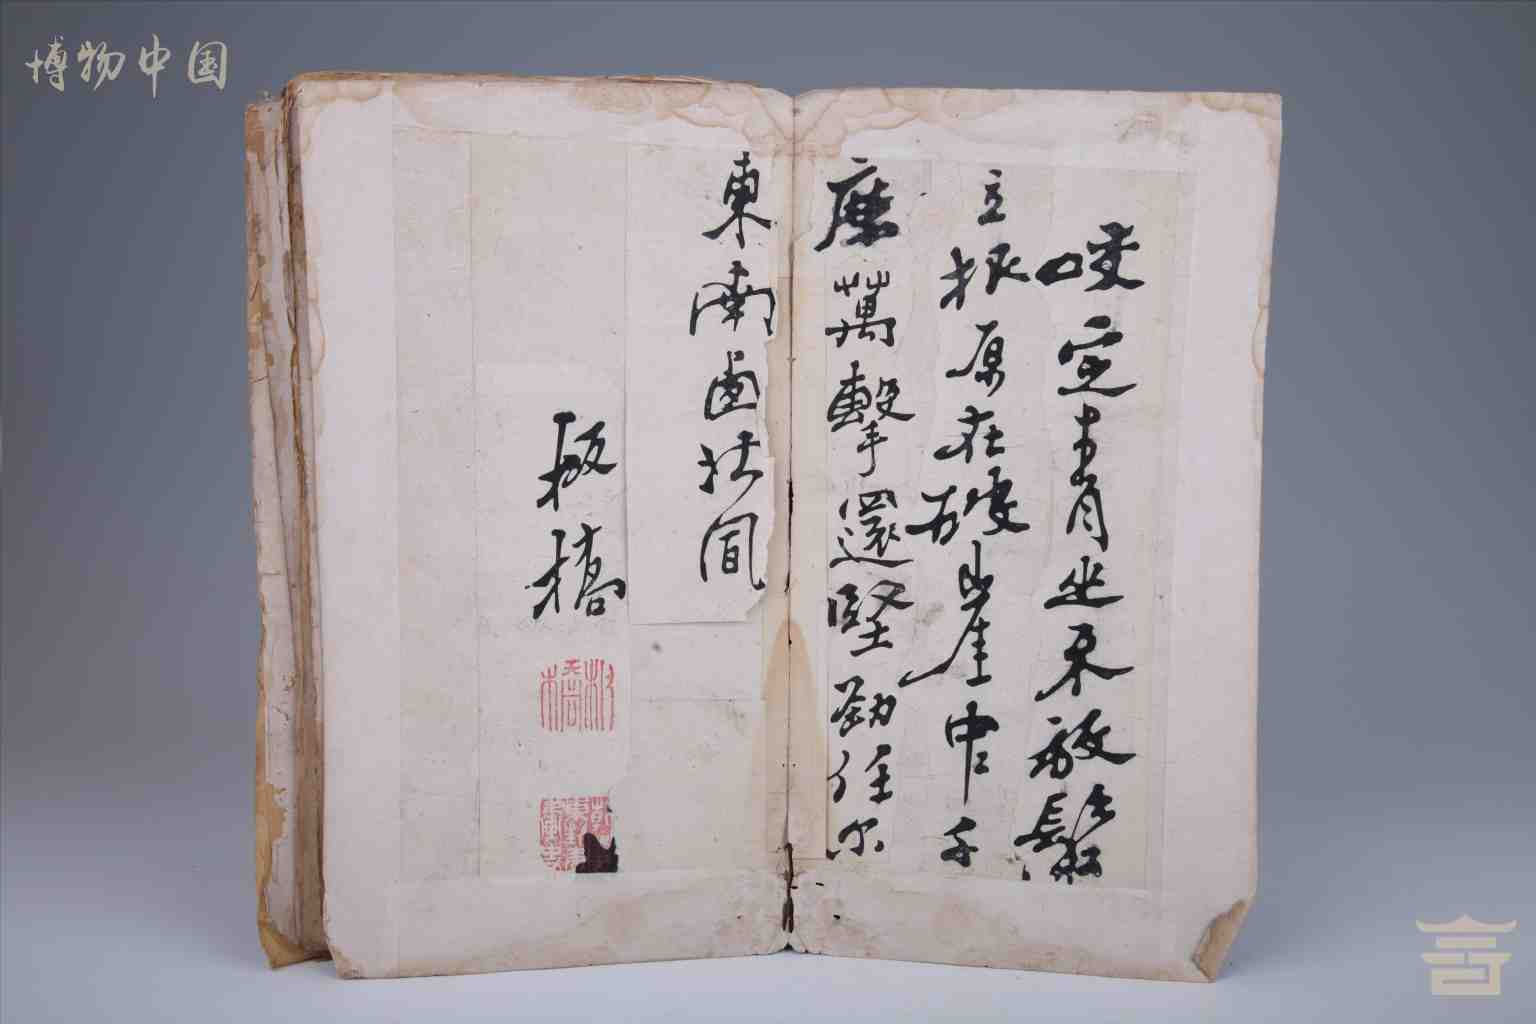 博物中国
咬定青山不放鬆
立根原在破崖中千
磨萬擊還堅勁任爾
東南西北風
板橋